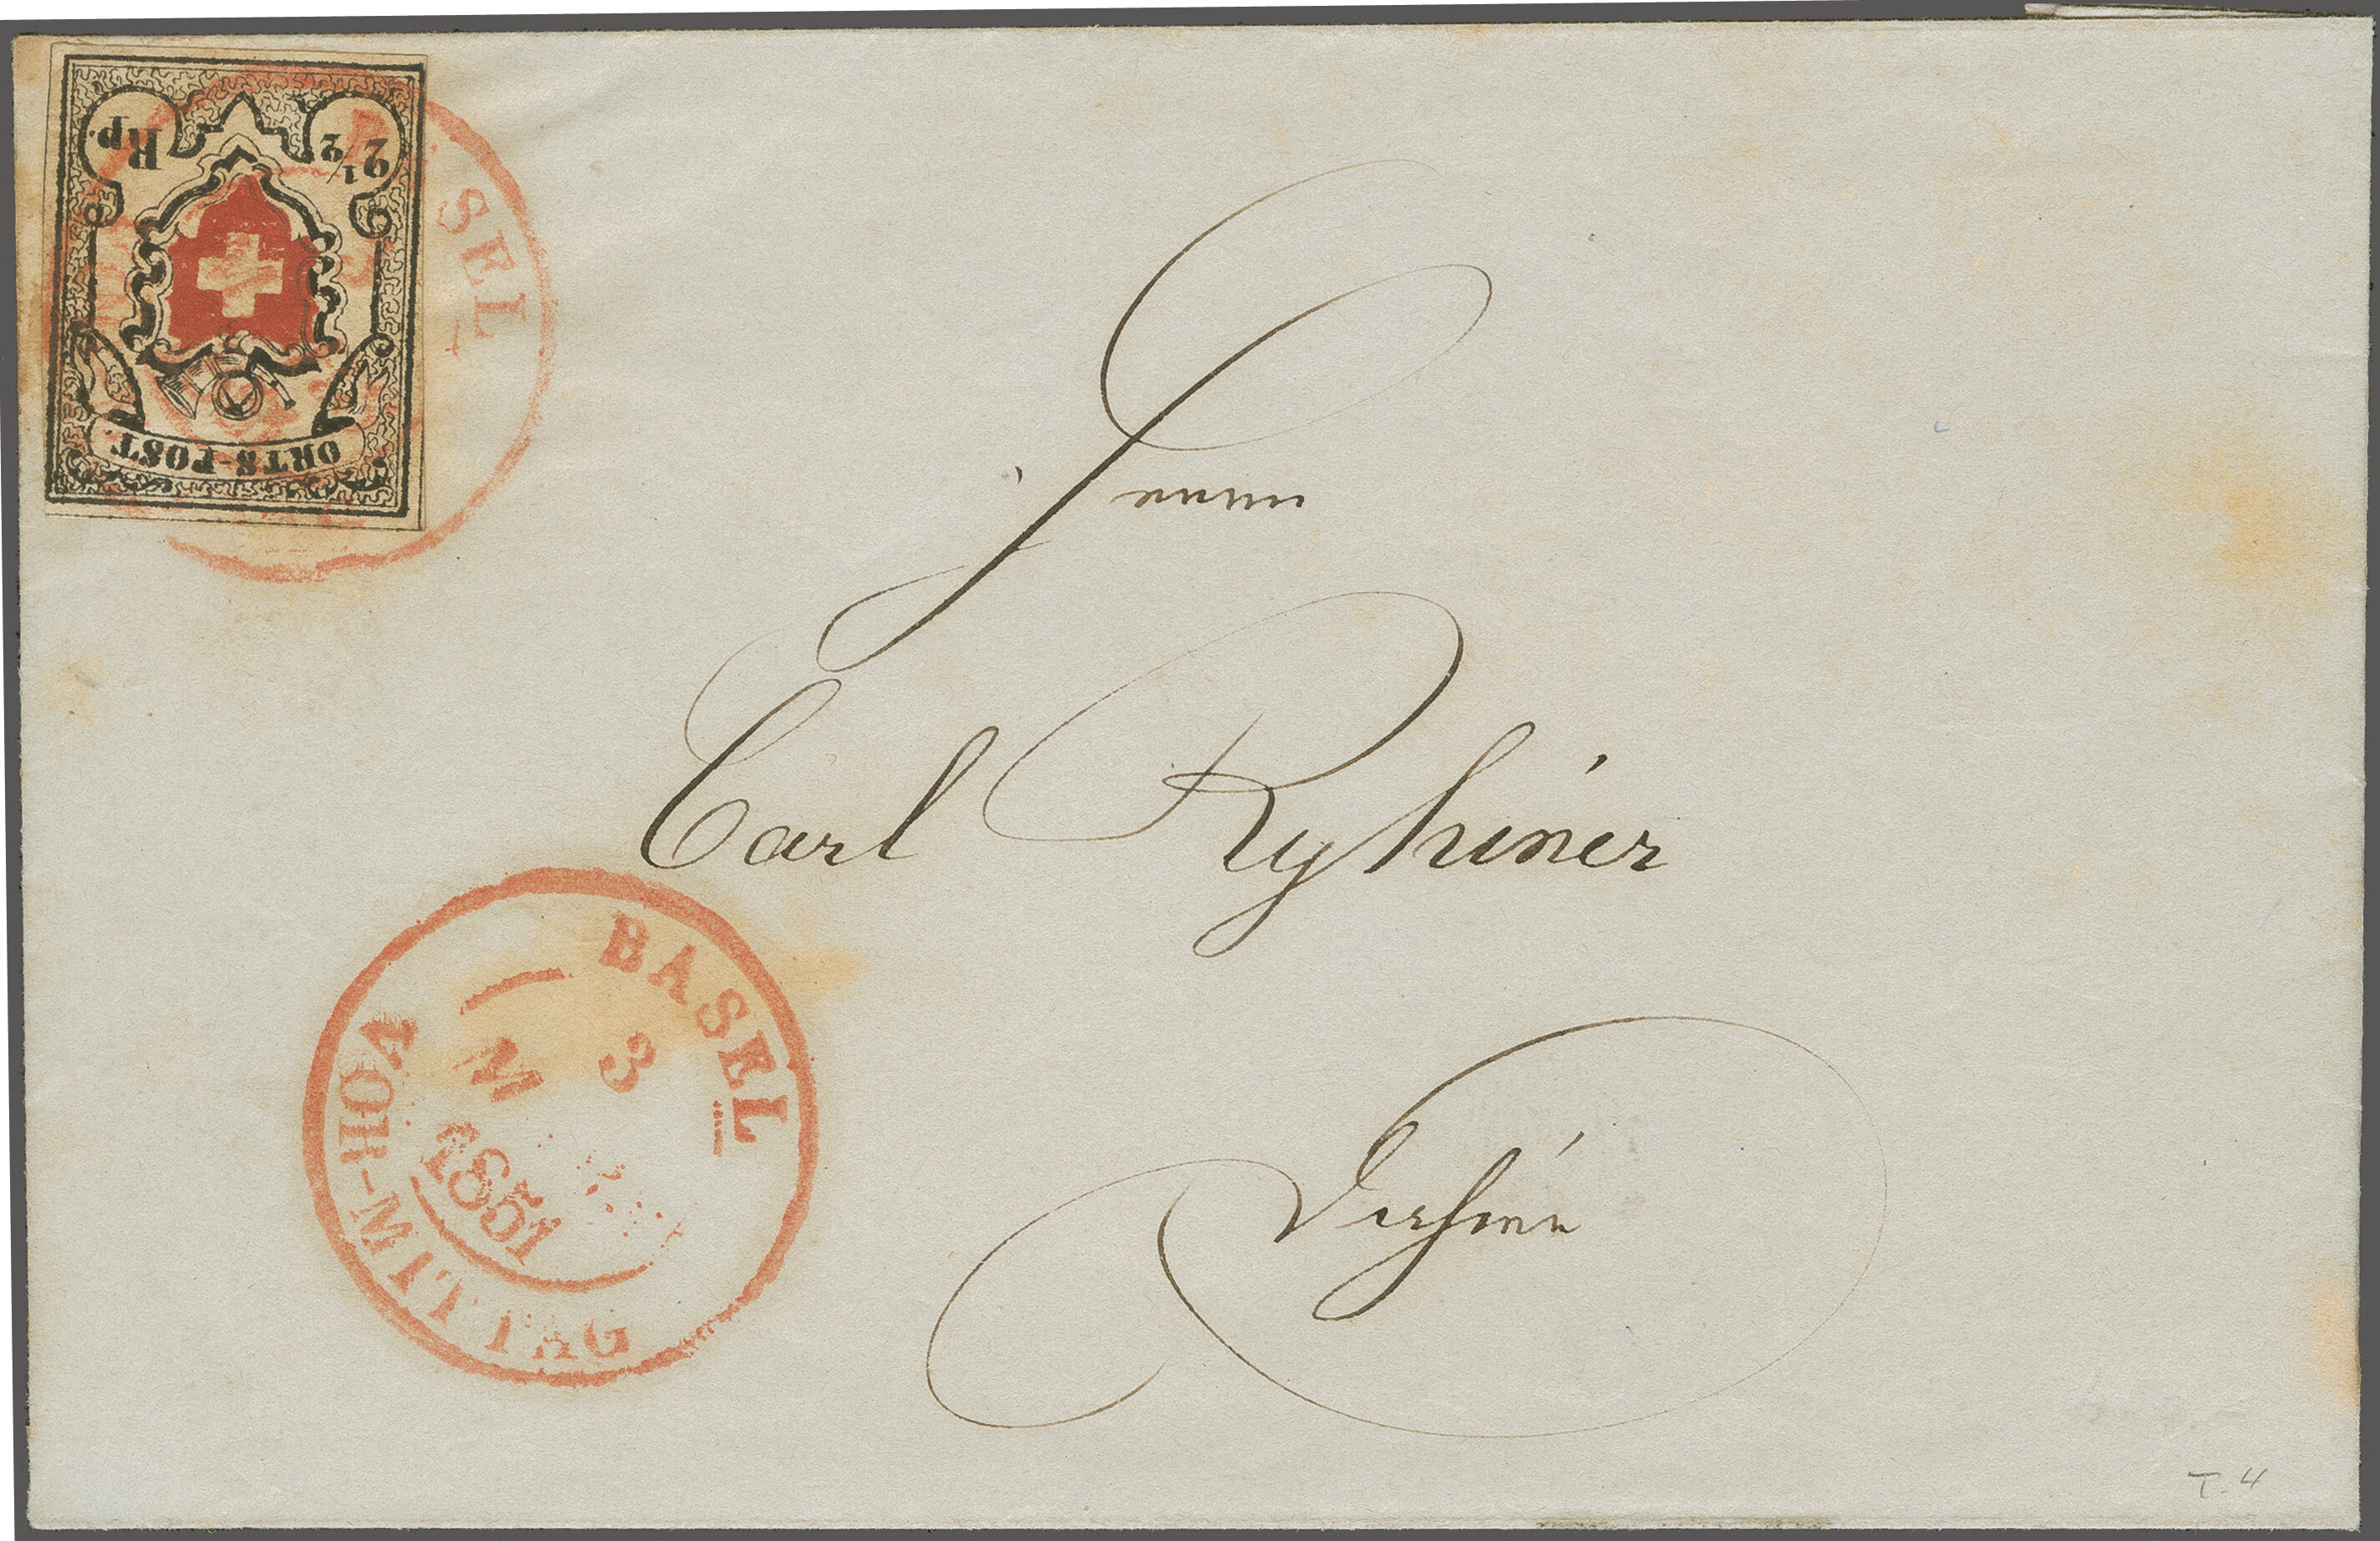 2 1/2 Rp.
ORTS-POST
SEL
Herrn
Carl Ryhiner
BASEL
3
M
1851
VORMITTAG
T. 4